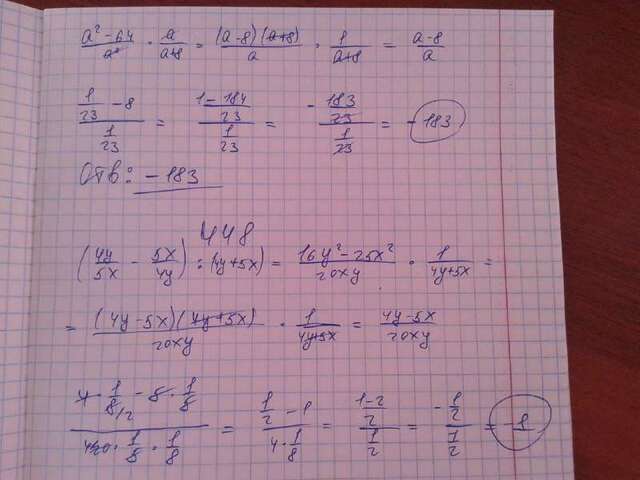 a² - 64 / a² · a / a+8 = (a-8)(a+8) / a · 1 / a+8 = a-8 / a
1/23 - 8 / 1/23 = 1-184/23 / 1/23 = - 183/23 / 1/23 = - 183
Отв: - 183
448
(4y/5x - 5x/4y) : (4y+5x) = 16y² - 25x² / 20xy · 1 / 4y+5x =
= (4y-5x)(4y+5x) / 20xy · 1 / 4y+5x = 4y-5x / 20xy
1/2 - 1 / 4 · 1/8 = 1-2/2 / 1/2 = - 1/2 / 1/2 =